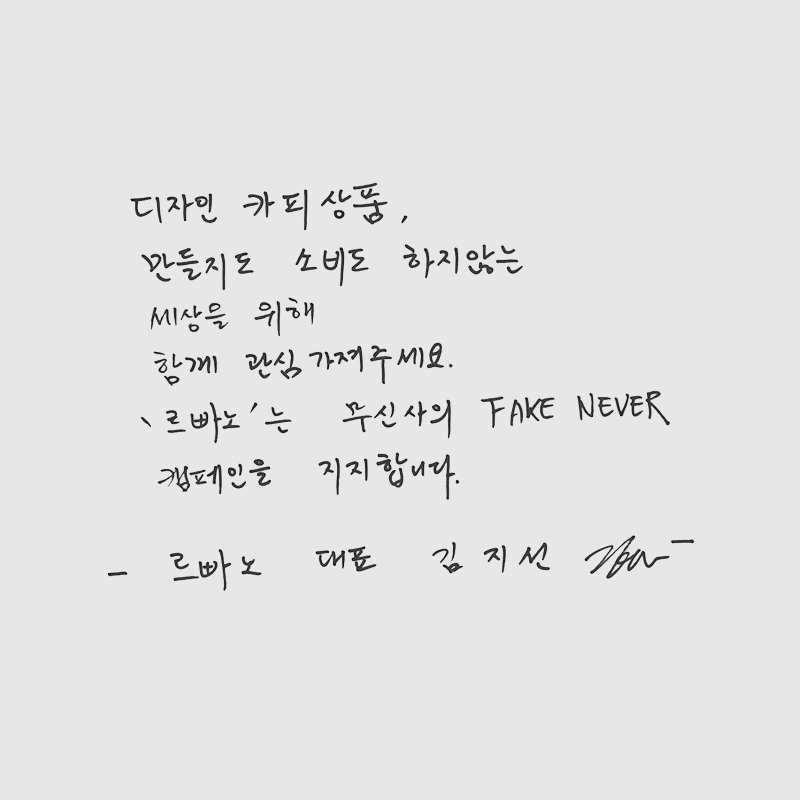 디자인 카피상품,
만들지도 소비도 하지않는
세상을 위해
함께 관심 가져주세요.
'르빠노'는 무신사의 FAKE NEVER
캠페인을 지지합니다.
- 르빠노 대표 김지선 -